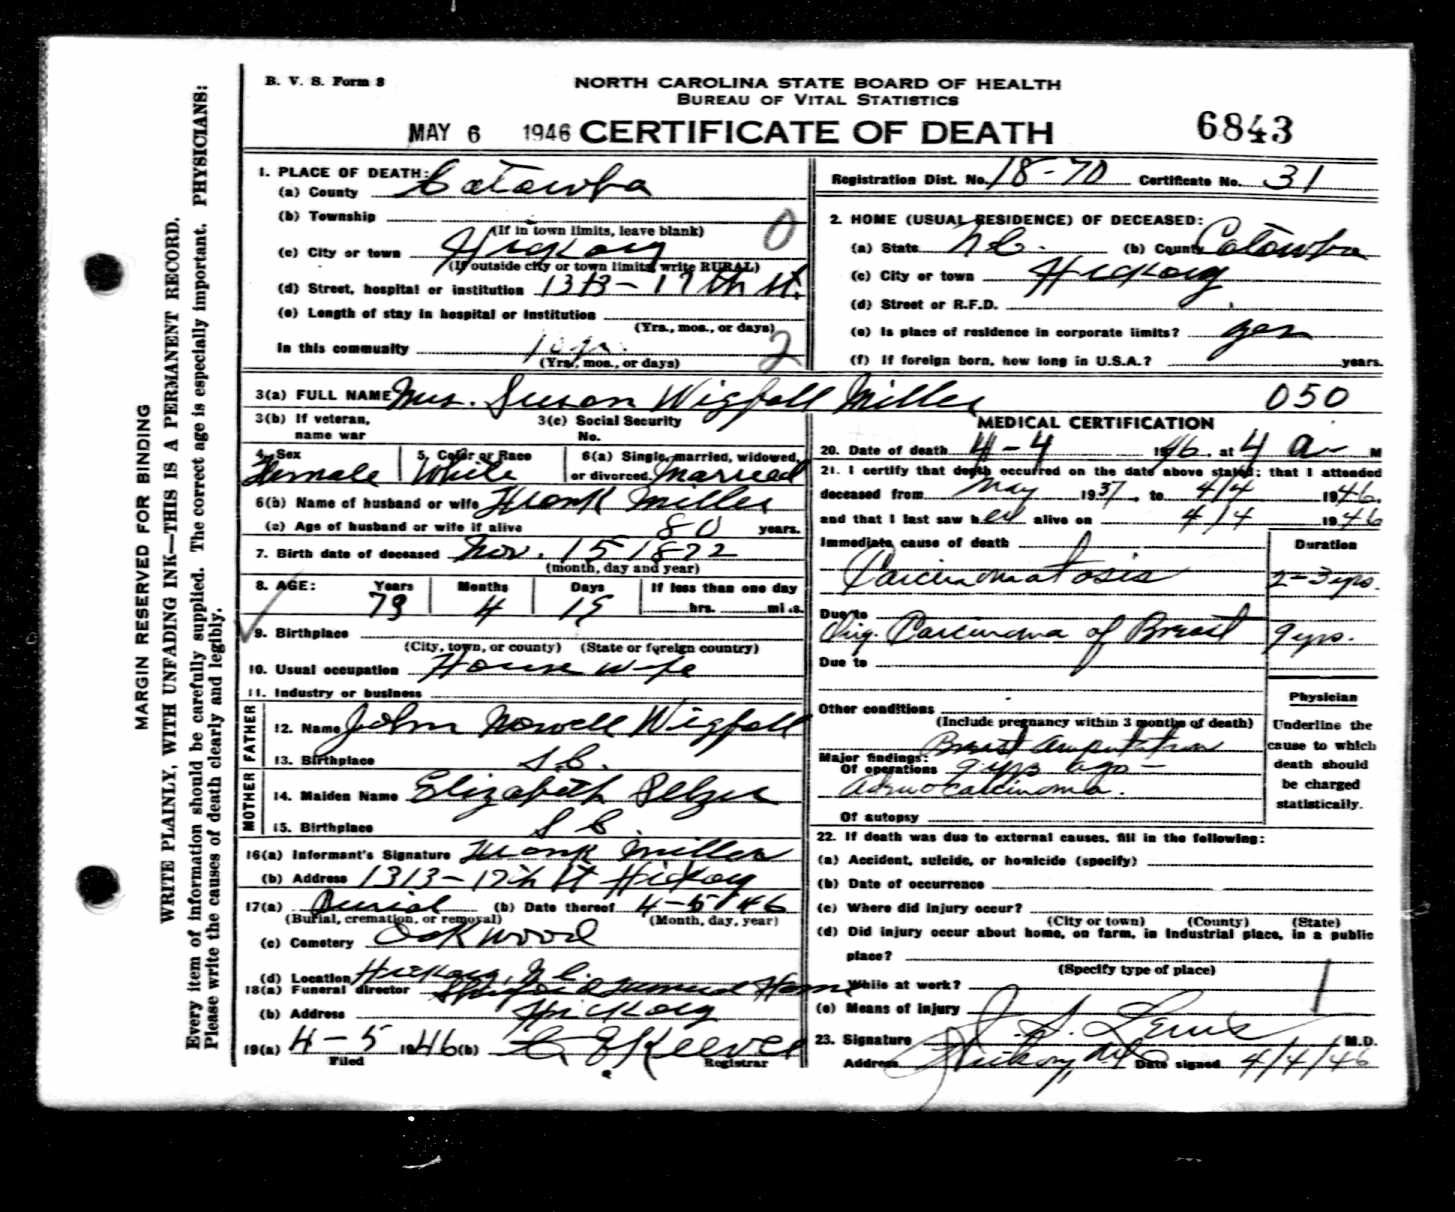 B. V. S. Form 8
NORTH CAROLINA STATE BOARD OF HEALTH
BUREAU OF VITAL STATISTICS
MAY 6 1946 CERTIFICATE OF DEATH 6843
MARGIN RESERVED FOR BINDING
WRITE PLAINLY, WITH UNFADING INK—THIS IS A PERMANENT RECORD.
Every item of information should be carefully supplied. The correct age is especially important. PHYSICIANS:
Please write the causes of death clearly and legibly.
1. PLACE OF DEATH:
(a) County Catawba
(b) Township
(If in town limits, leave blank) 0
(c) City or town Hickory
(If outside city or town limits, write RURAL)
(d) Street, hospital or institution 1313-17th st.
(e) Length of stay in hospital or institution
(Yrs., mos., or days)
In this community 10 yr. 2
(Yrs., mos., or days)
Registration Dist. No. 18-70 Certificate No. 31
2. HOME (USUAL RESIDENCE) OF DECEASED:
(a) State N.C. (b) County Catawba
(c) City or town Hickory
(d) Street or R.F.D.
(e) Is place of residence in corporate limits? yes
(f) If foreign born, how long in U.S.A.? years.
3(a) FULL NAME Mrs. Susan Wigfall Miller 050
3(b) If veteran, name war
3(c) Social Security No.
4. Sex Female
5. Color or Race White
6(a) Single, married, widowed, or divorced. Married
6(b) Name of husband or wife Frank Miller
(c) Age of husband or wife if alive 80 years.
7. Birth date of deceased Nov. 15 1872
(month, day and year)
8. AGE: Years Months Days If less than one day
73 4 19 hrs. min.
9. Birthplace
(City, town, or county) (State or foreign country)
10. Usual occupation House wife
11. Industry or business
FATHER
12. Name John Nowell Wigfall
13. Birthplace S.C.
MOTHER
14. Maiden Name Elizabeth Pelzer
15. Birthplace S C.
16(a) Informant's Signature Frank Miller
(b) Address 1313-17th St Hickory
17(a) Burial (b) Date thereof 4-5 46
(Burial, cremation, or removal) (Month, day, year)
(c) Cemetery Oakwood
(d) Location Hickory, N.C.
18(a) Funeral director Funeral Home
(b) Address Hickory
19(a) 4-5 1946 (b)
Filed Registrar
MEDICAL CERTIFICATION
20. Date of death 4-4 1946. at 4 a M
21. I certify that death occurred on the date above stated; that I attended
deceased from May 1937, to 4/4 1946.
and that I last saw her alive on 4/4 1946
Immediate cause of death Duration
Carcinomatosis 2-3 yrs.
Due to
Orig. Carcinoma of Breast 9 yrs.
Due to
Other conditions
(Include pregnancy within 3 months of death)
Breast amputation
Major findings:
Of operations 9 yrs ago -
adenocarcinoma.
Of autopsy
Physician
Underline the
cause to which
death should
be charged
statistically.
22. If death was due to external causes, fill in the following:
(a) Accident, suicide, or homicide (specify)
(b) Date of occurrence
(c) Where did injury occur?
(City or town) (County) (State)
(d) Did injury occur about home, on farm, in industrial place, in a public
place?
(Specify type of place)
While at work?
(e) Means of injury
23. Signature Lewis M.D.
Address Hickory, NC Date signed 4/4/46